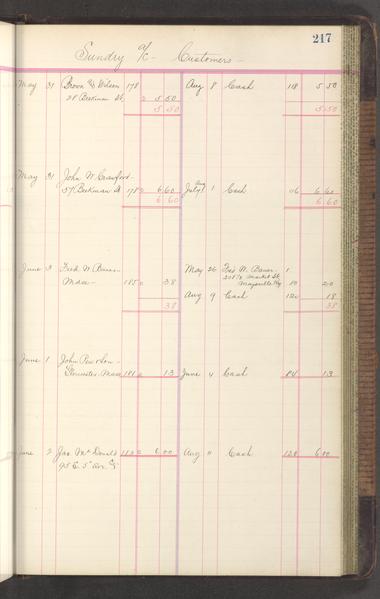 217
Sundry a/c - Customers -
May 31 Brown & Wilson 178 Aug 8 Cash 118 5 50
28 Beekman St. 2 5 50
5 50 5 50
May 31 John W. Crawford - Aug
57 Beekman St 178 6 60 July 1 Cash 06 6 60
6 60 6 60
June 3 Fred. W. Bauer - May 26 Fred W. Bauer 1
Mase - 185 38 Market St
Maysville Ky 20
38 Aug 9 Cash 120 18
38
June 1 John Pew & Son -
Gloucester, Mass 181 13 June 4 Cash 84 13
June 2 Jas. McDonald 6 00 Aug 11 Cash 128 6 00
95 E. 5" Ave.